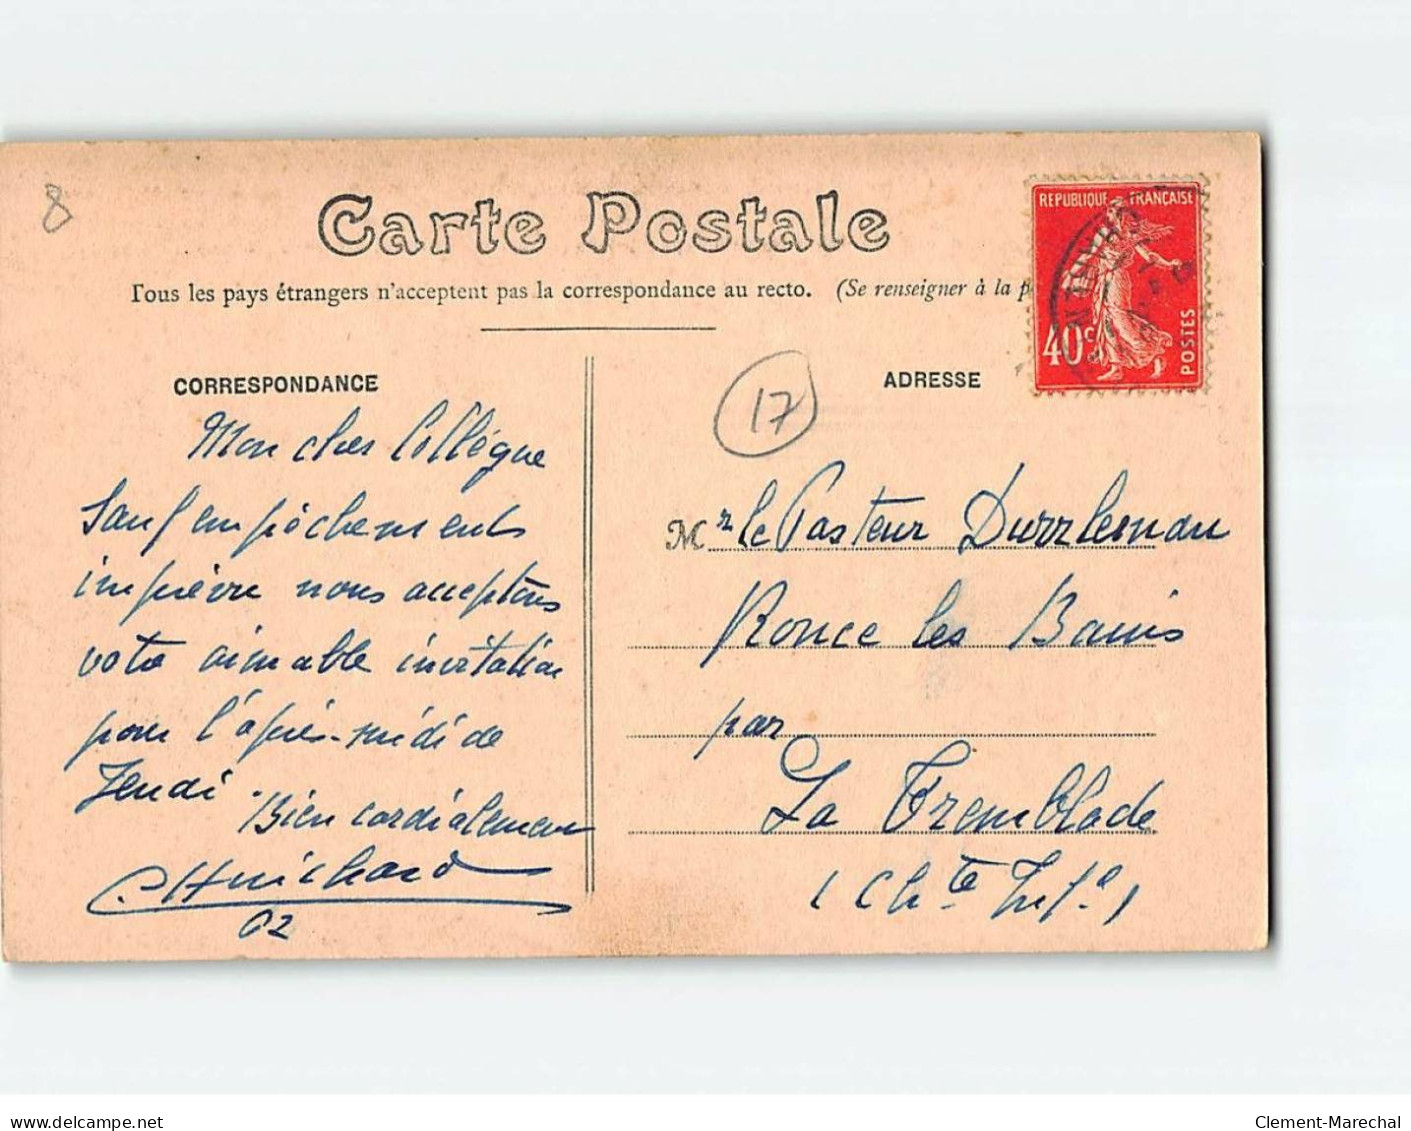 8
Carte Postale
Tous les pays étrangers n'acceptent pas la correspondance au recto. (Se renseigner à la p
REPUBLIQUE FRANÇAISE
40c
POSTES
CORRESPONDANCE
17
ADRESSE
Mon cher Collégue
Sauf empêchements
imprévu nous acceptons
votre aimable invitation
pour l'après-midi de
Jeudi.
Bien cordialement
Mr le Pasteur
Ronce les Bains
par
La Tremblade
(Chte Infe)
www.delcampe.net
Clement-Marechal